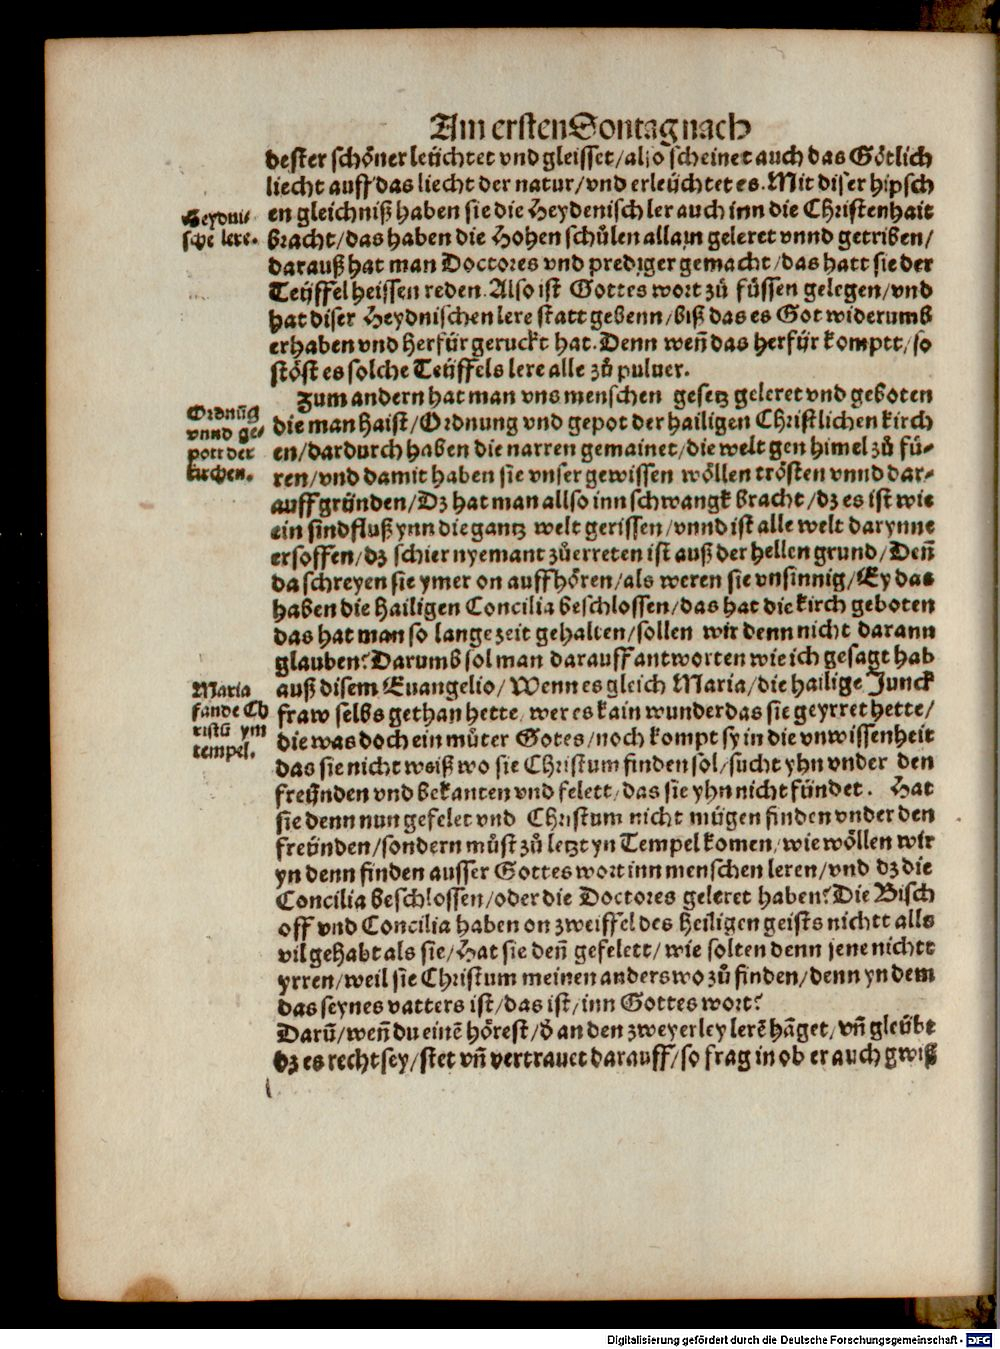 Am ersten Sontag nach
dester schöner leüchtet vnd gleisset/also scheinet auch das Götlich
liecht auff das liecht der natur/vnd erleüchtet es. Mit diser hipsch
en gleichniß haben sie die Heydenisch ler auch inn die Christenhait
bracht/das haben die Hohen schůlen allain geleret vnnd getriben/
darauß hat man Doctores vnd prediger gemacht/das hatt sie der
Teüffel heissen reden. Also ist Gottes wort zů füssen gelegen/vnd
hat diser Heydnischen lere statt gebenn/biß das es Got widerumb
erhaben vnd herfür geruckt hat. Denn wen̄ das herfür komptt/so
stöst es solche Teüffels lere alle zů puluer.
Heydni-
sche lere.
Zum andern hat man vns menschen gesetz geleret vnd geboten
die man haist/Ordnung vnd gepot der hailigen Christlichen kirch
en/dardurch haben die narren gemainet/die welt gen himel zů fü-
ren/vnd damit haben sie vnser gewissen wöllen trösten vnnd dar-
auff gründen/Dz hat man allso inn schwangk bracht/dz es ist wie
ein sindfluß ynn die gantz welt gerissen/vnnd ist alle welt darynne
ersoffen/dz schier nyemant zůerreten ist auß der hellen grund/Den̄
da schreyen sie ymer on auffhören/als weren sie vnsinnig/Ey das
haben die hailigen Concilia beschlossen/das hat die kirch geboten
das hat man so lange zeit gehalten/sollen wir denn nicht darann
glauben? Darumb sol man darauff antworten wie ich gesagt hab
auß disem Euangelio/Wenn es gleich Maria/die hailige Junck
fraw selbs gethan hette/wer es kain wunder das sie geyrret hette/
die was doch ein můter Gotes/noch kompt sy in die vnwissenheit
das sie nicht weiß wo sie Christum finden sol/sucht yhn vnder den
freünden vnd bekanten vnd felett/das sie yhn nicht fündet. Hat
sie denn nun gefelet vnd Christum nicht mügen finden vnder den
freünden/sondern můst zů letzt yn Tempel komen/wie wöllen wir
yn denn finden ausser Gottes wort inn menschen leren/vnd dz die
Concilia beschlossen/oder die Doctores geleret haben? Die Bisch
off vnd Concilia haben on zweiffel des heiligen geists nichtt alls
vil gehabt als sie/Hat sie den̄ gefelett/wie solten denn jene nichtt
yrren/weil sie Christum meinen anderswo zů finden/denn yn dem
das seynes vatters ist/das ist/inn Gottes wort?
Darū/wen̄ du einē hörest/ď an den zweyerley lerē hāget/vn̄ gleübt
dz es recht sey/stet vn̄ vertrauet darauff/so frag in ob er auch gwiß
Ordnūg
vnnd ge-
pott der
kirchen.
Maria
fande Ch
ristū ym
tempel.
Digitalisierung gefördert durch die Deutsche Forschungsgemeinschaft - DFG